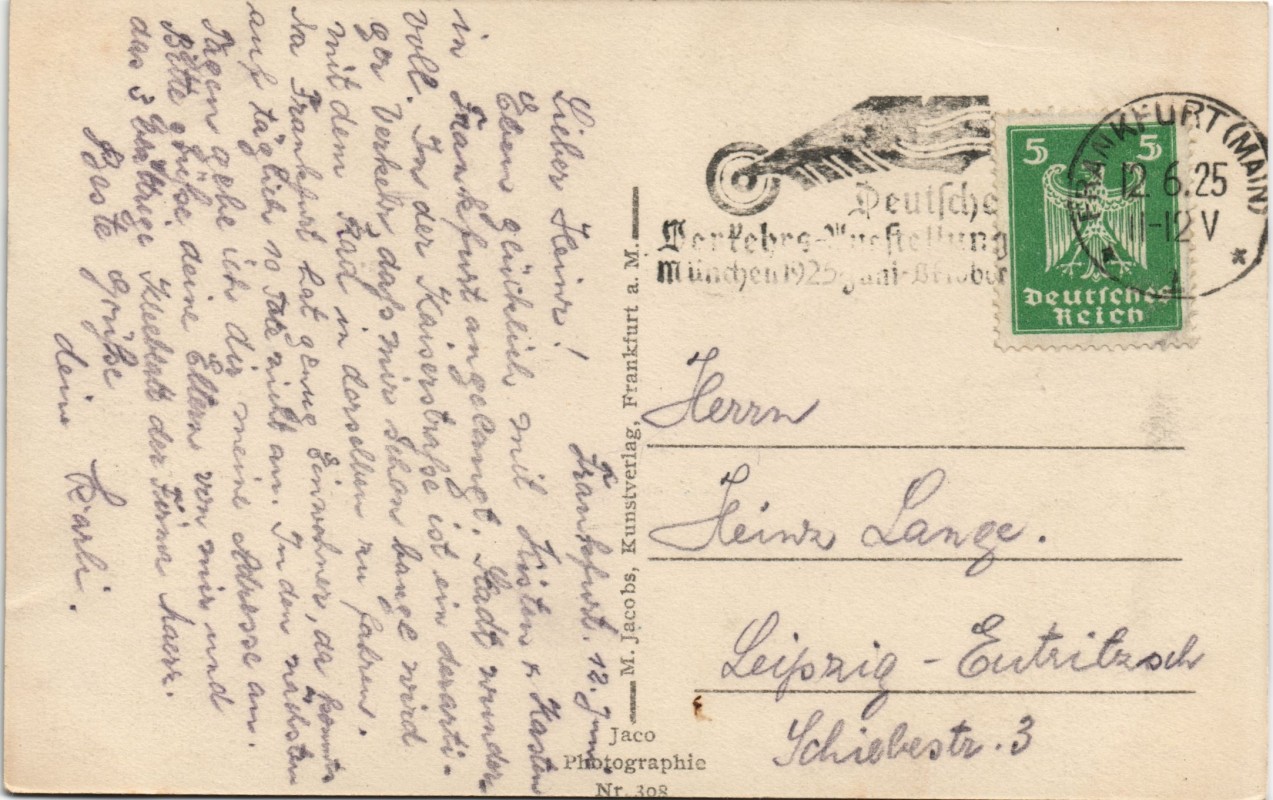 Frankfurt. 12. Juni.
Lieber Heinz!
Eben glücklich mit Kisten & Kasten
in Frankfurt angelangt. Stadt wunder-
voll. In der Kaiserstraße ist ein derarti-
ger Verkehr, daß mir schon bange wird
mit dem Rad in derselben zu fahren.
Na Frankfurt hat genug Einwohner, da kommts
auf täglich 10 Tote nicht an. In den nächsten
Tagen gebe ich dir meine Adresse an.
Bitte grüße deine Eltern von mir und
das 3 Kleeblatt der Firma
Beste Grüße
dein Karli.
M. Jacobs, Kunstverlag, Frankfurt a. M.
Jaco
Photographie
Nr. 308
Deutsche
Verkehrs-Ausstellung
München 1925 Juni-Oktober
5 5
Deutsches
Reich
FRANKFURT (MAIN)
12.6.25
11-12 V
* *
Herrn
Heinz Lange.
Leipzig - Eutritzsch
Schiebestr. 3